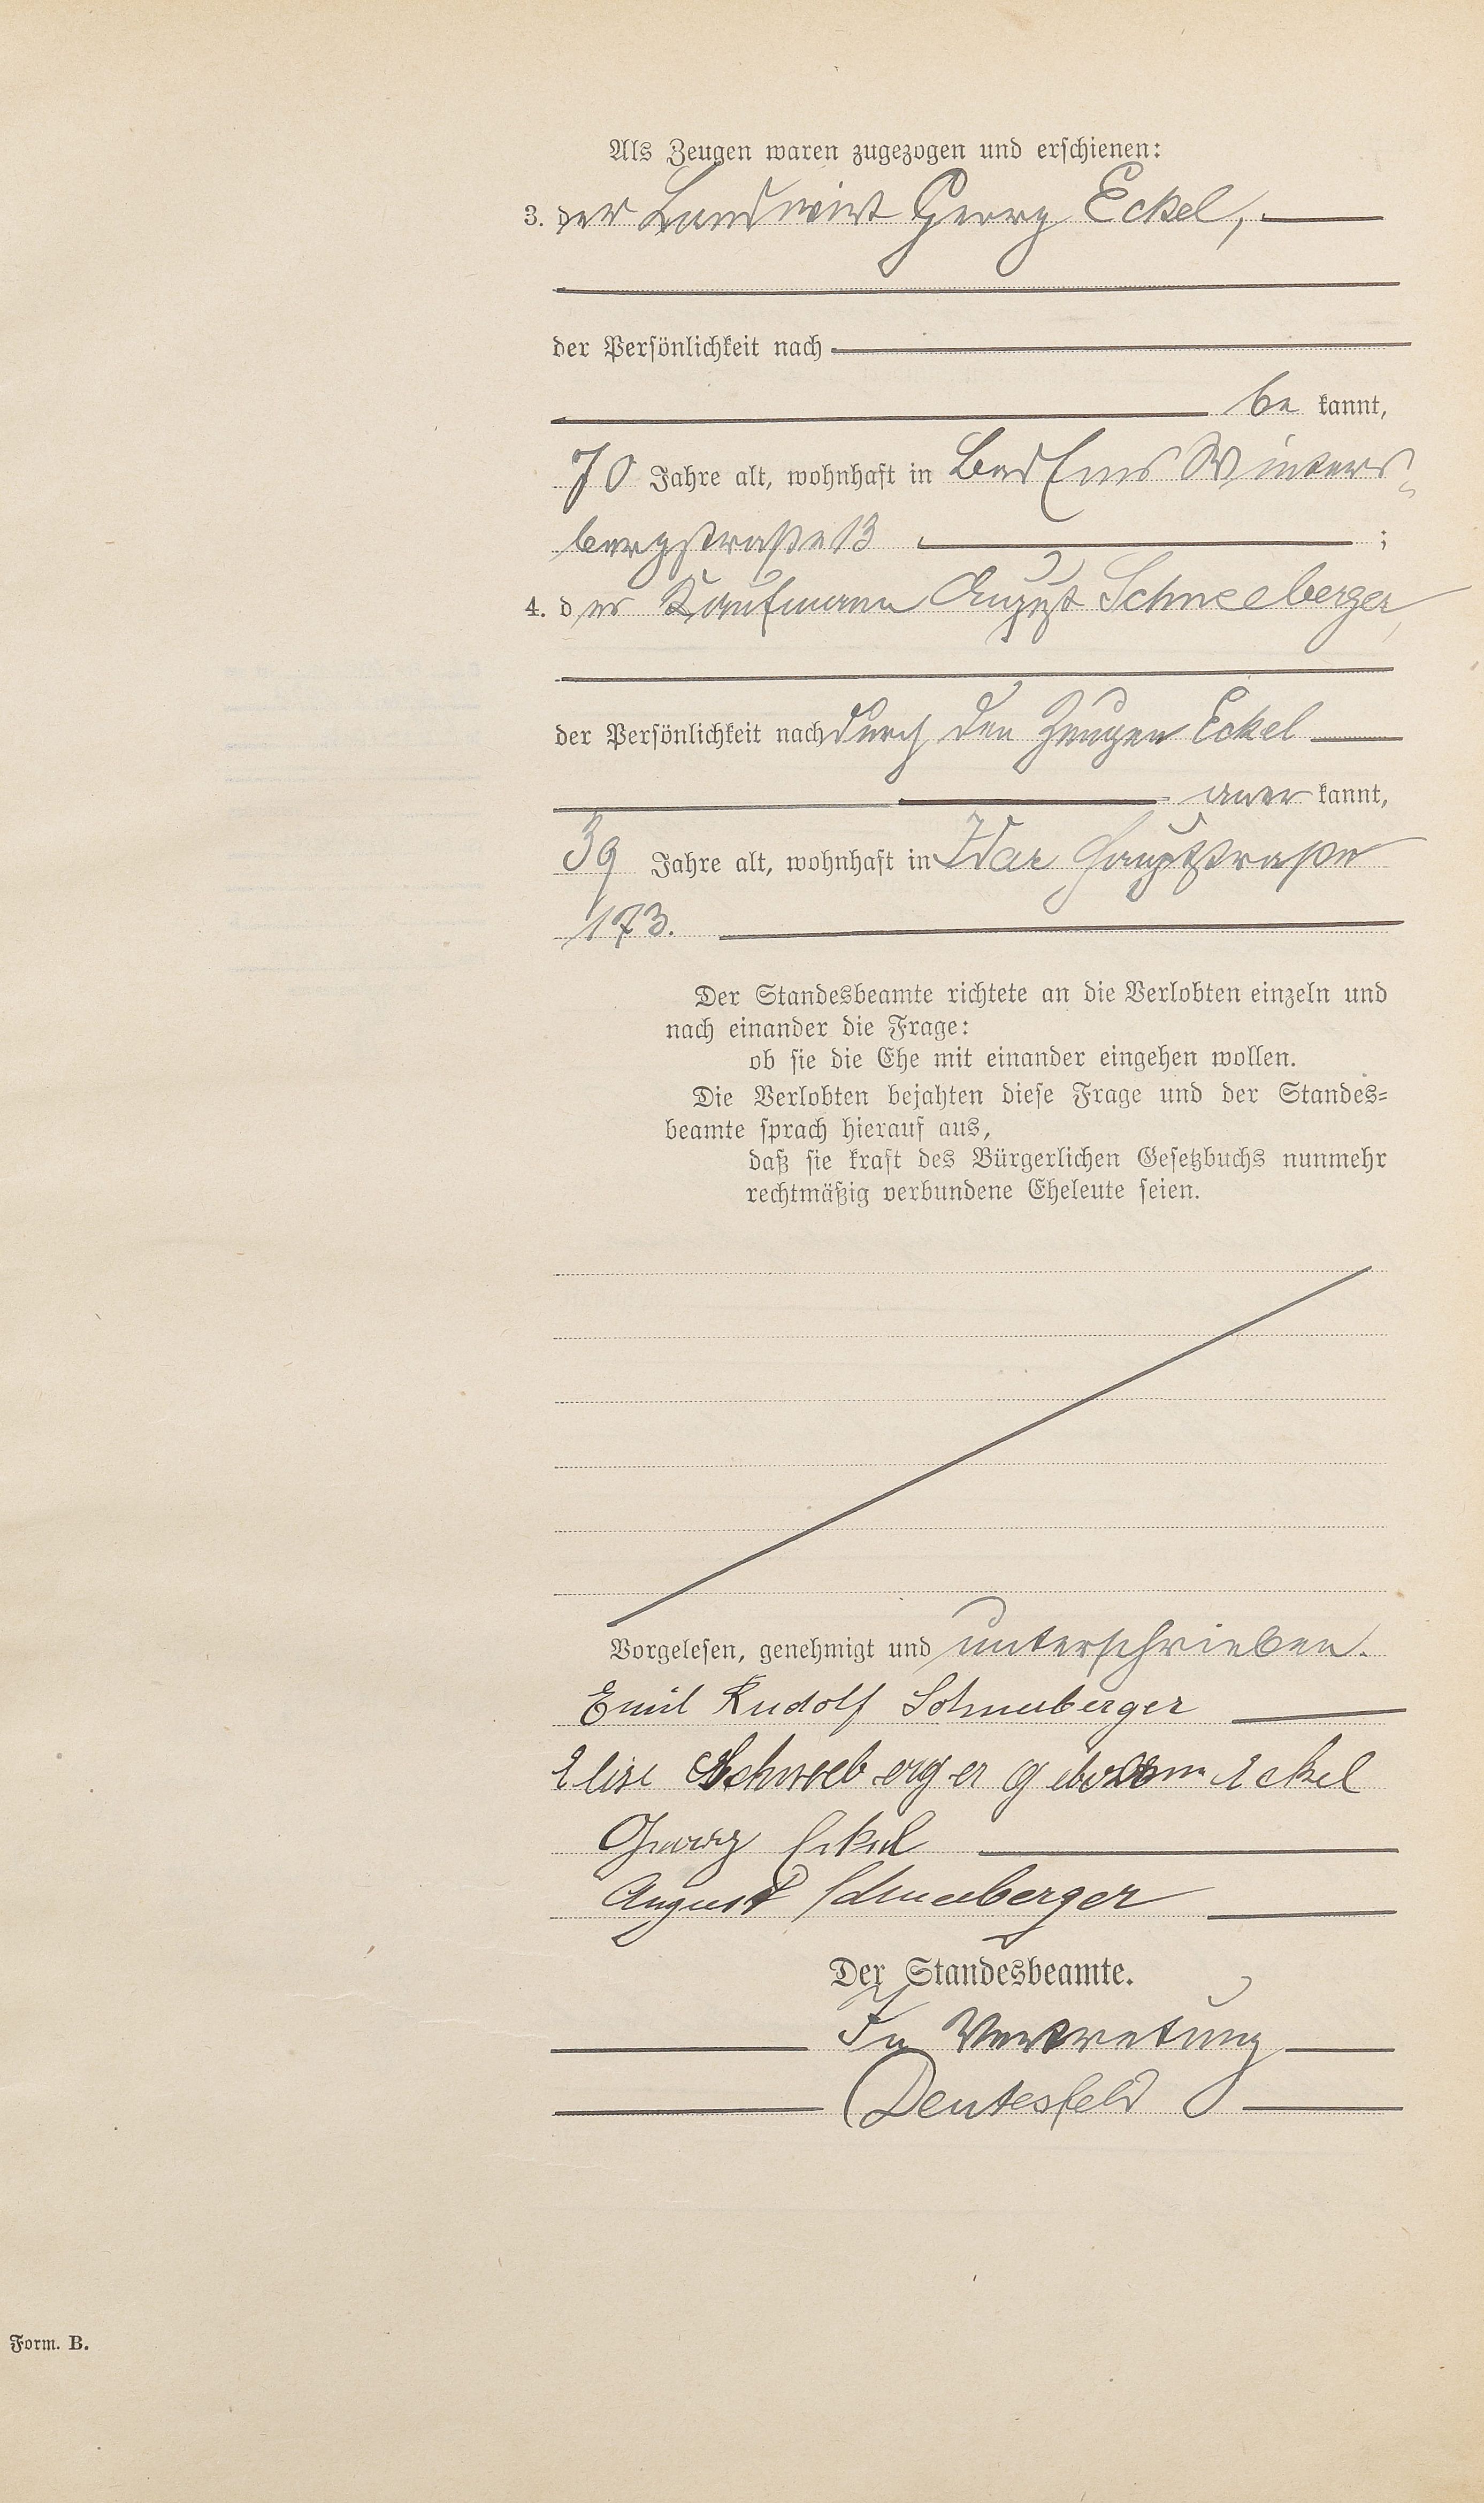 Als Zeugen waren zugezogen und erschienen:
3. der Landwirt Georg Eckel,
der Persönlichkeit nach
be kannt,
70 Jahre alt, wohnhaft in Bad Ems Winters-
bergstraße 13 ;
4. der Kaufmann August Schneeberger,
der Persönlichkeit nach durch den Zeugen Eckel
aner kannt,
39 Jahre alt, wohnhaft in Idar Hauptstraße
173.
Der Standesbeamte richtete an die Verlobten einzeln und
nach einander die Frage:
ob sie die Ehe mit einander eingehen wollen.
Die Verlobten bejahten diese Frage und der Standes-
beamte sprach hierauf aus,
daß sie kraft des Bürgerlichen Gesetzbuchs nunmehr
rechtmäßig verbundene Eheleute seien.
Vorgelesen, genehmigt und unterschrieben.
Emil Rudolf Schneeberger
Elise Schneeberger geborene Eckel
Georg Eckel
August Schneeberger
Der Standesbeamte.
In Vertretung
Deutesfeld
Form. B.